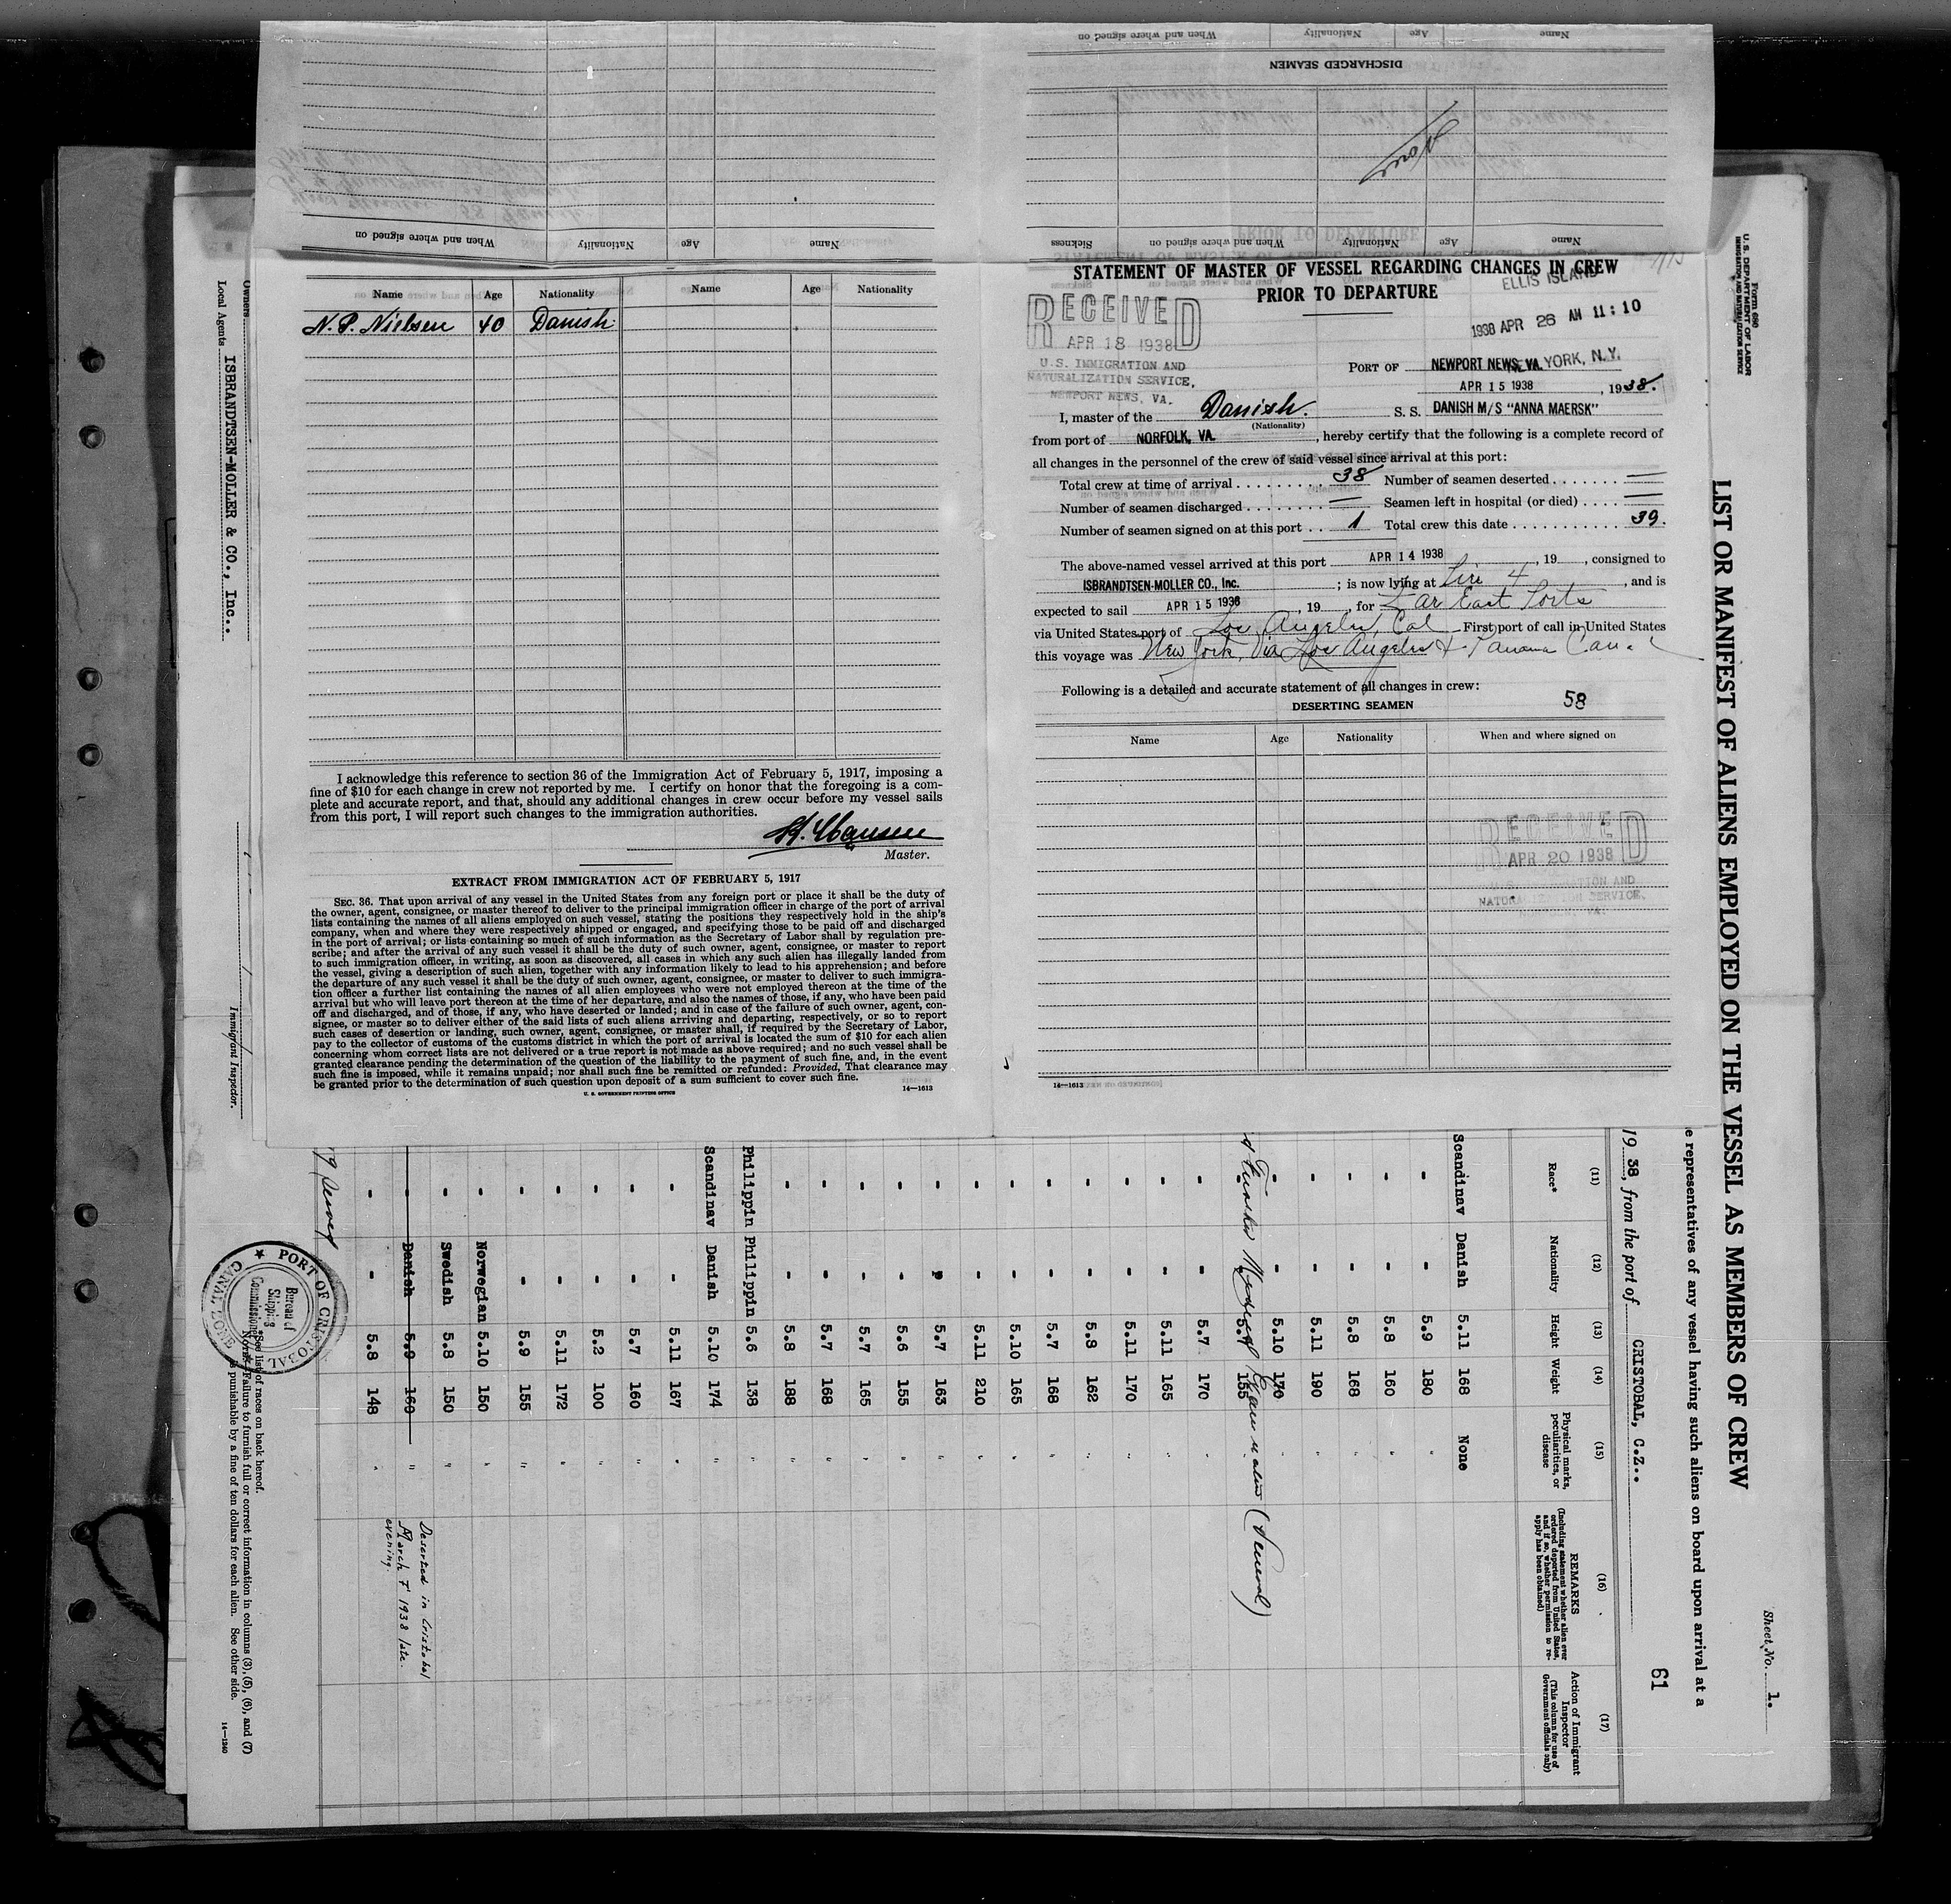 Name Age Nationality When and where signed on
DISCHARGED SEAMEN
When and where signed on Nationality Age Name
Sickness When and where signed on Nationality Age Name
Name Age Nationality Name Age Nationality
N. P. Nielsen 40 Danish.
I acknowledge this reference to section 36 of the Immigration Act of February 5, 1917, imposing a
fine of $10 for each change in crew not reported by me. I certify on honor that the foregoing is a com-
plete and accurate report, and that, should any additional changes in crew occur before my vessel sails
from this port, I will report such changes to the immigration authorities.
Master.
EXTRACT FROM IMMIGRATION ACT OF FEBRUARY 5, 1917
SEC. 36. That upon arrival of any vessel in the United States from any foreign port or place it shall be the duty of
the owner, agent, consignee, or master thereof to deliver to the principal immigration officer in charge of the port of arrival
lists containing the names of all aliens employed on such vessel, stating the positions they respectively hold in the ship's
company, when and where they were respectively shipped or engaged, and specifying those to be paid off and discharged
in the port of arrival; or lists containing so much of such information as the Secretary of Labor shall by regulation pre-
scribe; and after the arrival of any such vessel it shall be the duty of such owner, agent, consignee, or master to report
to such immigration officer, in writing, as soon as discovered, all cases in which any such alien has illegally landed from
the vessel, giving a description of such alien, together with any information likely to lead to his apprehension; and before
the departure of any such vessel it shall be the duty of such owner, agent, consignee, or master to deliver to such immigra-
tion officer a further list containing the names of all alien employees who were not employed thereon at the time of the
arrival but who will leave port thereon at the time of her departure, and also the names of those, if any, who have been paid
off and discharged, and of those, if any, who have deserted or landed; and in case of the failure of such owner, agent, con-
signee, or master so to deliver either of the said lists of such aliens arriving and departing, respectively, or so to report
such cases of desertion or landing, such owner, agent, consignee, or master shall, if required by the Secretary of Labor,
pay to the collector of customs of the customs district in which the port of arrival is located the sum of $10 for each alien
concerning whom correct lists are not delivered or a true report is not made as above required; and no such vessel shall be
granted clearance pending the determination of the question of the liability to the payment of such fine, and, in the event
such fine is imposed, while it remains unpaid; nor shall such fine be remitted or refunded: Provided, That clearance may
be granted prior to the determination of such question upon deposit of a sum sufficient to cover such fine.
U. S. GOVERNMENT PRINTING OFFICE 14—1613
STATEMENT OF MASTER OF VESSEL REGARDING CHANGES IN CREW
PRIOR TO DEPARTURE
ELLIS ISLAND
1938 APR 26 AM 11:10
RECEIVED
APR 18 1938
U.S. IMMIGRATION AND
NATURALIZATION SERVICE,
NEWPORT NEWS, VA.
PORT OF NEWPORT NEWS, VA. YORK, N.Y.
APR 15 1938, 1938.
I, master of the Danish. S. S. DANISH M/S "ANNA MAERSK"
(Nationality)
from port of NORFOLK, VA., hereby certify that the following is a complete record of
all changes in the personnel of the crew of said vessel since arrival at this port:
Total crew at time of arrival 38 Number of seamen deserted —
Number of seamen discharged — Seamen left in hospital (or died) —
Number of seamen signed on at this port 1 Total crew this date 39.
The above-named vessel arrived at this port APR 14 1938, 19, consigned to
ISBRANDTSEN-MOLLER CO., Inc.; is now lying at 4, and is
expected to sail APR 15 1938, 19, for Far East Ports
via United States port of Los Angeles, Cal First port of call in United States
this voyage was New York, Via Los Angeles & Panama Canal
Following is a detailed and accurate statement of all changes in crew:
DESERTING SEAMEN 58
Name Age Nationality When and where signed on
RECEIVED
APR 20 1938
14—1613
Form 680
U. S. DEPARTMENT OF LABOR
IMMIGRATION AND NATURALIZATION SERVICE
Sheet No. 1.
LIST OR MANIFEST OF ALIENS EMPLOYED ON THE VESSEL AS MEMBERS OF CREW
representatives of any vessel having such aliens on board upon arrival at a
19 38, from the port of CRISTOBAL, C.Z..
61
(11) (12) (13) (14) (15) (16) (17)
Race* Nationality Height Weight Physical marks, peculiarities, or disease REMARKS (Including statement whether alien ever ordered deported from United States, and if so, whether permission to re-apply has been obtained) Action of Immigrant Inspector (This column for use of Government officials only)
Scandinav Danish 5.11 168 None
- - 5.9 180 "
- - 5.8 160 "
- - 5.8 168 "
- - 5.11 190 "
- - 5.10 170 "
- - 5.7 155
- - 5.7 170 "
- - 5.11 165 "
- - 5.11 170 "
- - 5.8 162 "
- - 5.7 168 "
- - 5.10 165 "
- - 5.11 210 "
- - 5.7 163 "
- - 5.6 155 "
- - 5.7 165 "
- - 5.7 168 "
- - 5.8 188 "
Philippin Philippin 5.6 138 "
Scandinav Danish 5.10 174 "
- - 5.11 167 "
- - 5.7 160 "
- - 5.2 100 "
- - 5.11 172 "
- - 5.9 155 "
- Norwegian 5.10 150 "
- Swedish 5.8 150 "
- Danish 5.9 169 " Deserted in Cristobal March 7 1938 late evening.
- - 5.8 148 "
PORT OF CRISTOBAL
CANAL ZONE
Bureau of
Shipping
Commissioner
*See list of races on back hereof.
NOTE.—Failure to furnish full or correct information in columns (3), (5), (6), and (7)
is punishable by a fine of ten dollars for each alien. See other side.
14—1240
Owners
Local Agents ISBRANDTSEN-MOLLER & CO., Inc..
Immigrant Inspector.